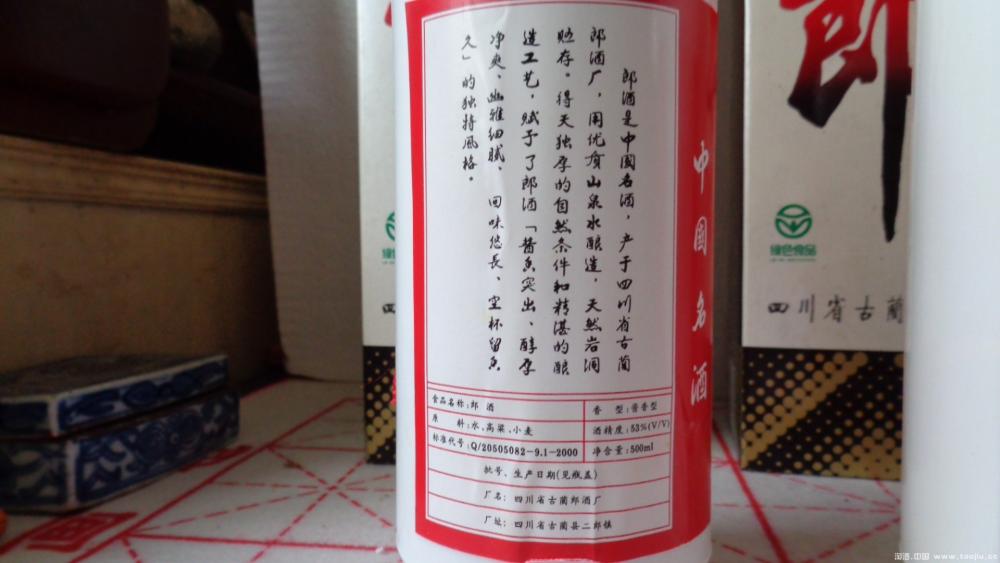 郎酒是中國名酒，产于四川省古蔺
郎酒厂，用优质山泉水酿造，天然岩洞
贮存。得天独厚的自然条件和精湛的酿
造工艺，赋予了郎酒「酱香突出、醇厚
净爽、幽雅细腻、回味悠長、空杯留香
久」的独特风格。
食品名称:郎 酒
香 型:酱香型
原 料:水、高粱、小麦
酒精度:53%(V/V)
标准代号:Q/20505082-9.1-2000
净含量:500ml
批号、生产日期(见瓶盖)
厂名: 四川省古蔺郎酒厂
厂址: 四川省古蔺县二郎镇
中國名酒
郎
绿色食品
四川省古蔺
四
淘酒.中国 www.taojiu.cc